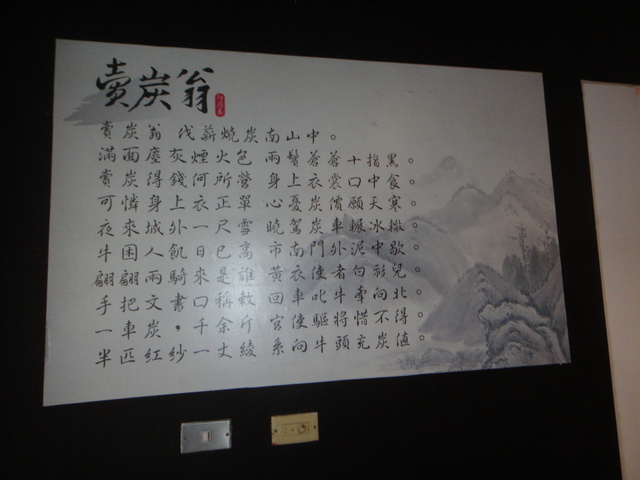 賣炭翁
賣炭翁 伐薪燒炭南山中。
滿面塵灰煙火色 兩鬢蒼蒼十指黑。
賣炭得錢何所營 身上衣裳口中食。
可憐身上衣正單 心憂炭價願天寒。
夜來城外一尺雪 曉駕炭車輾冰轍。
牛困人飢日已高 市南門外泥中歇。
翩翩兩騎來是誰 黃衣使者白衫兒。
手把文書口稱敕 回車叱牛牽向北。
一車炭，千余斤 宮使驅將惜不得。
半匹紅紗一丈綾 系向牛頭充炭值。